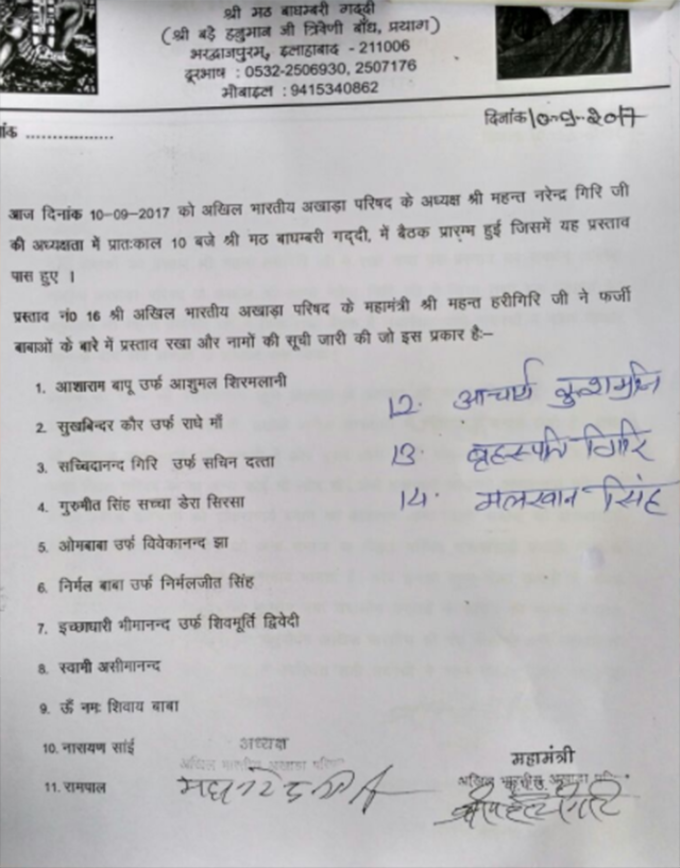 श्री मठ बाघम्बरी गद्दी
(श्री बड़े हनुमान जी त्रिवेणी बाँध, प्रयाग)
भरद्वाजपुरम्, इलाहाबाद - 211006
दूरभाष : 0532-2506930, 2507176
मोबाइल : 9415340862
दिनांक 10-9-2017
आज दिनांक 10-09-2017 को अखिल भारतीय अखाड़ा परिषद के अध्यक्ष श्री महन्त नरेन्द्र गिरि जी
की अध्यक्षता में प्रातःकाल 10 बजे श्री मठ बाघम्बरी गद्दी, में बैठक प्रारम्भ हुई जिसमें यह प्रस्ताव
पास हुए ।
प्रस्ताव नं0 16 श्री अखिल भारतीय अखाड़ा परिषद के महामंत्री श्री महन्त हरीगिरि जी ने फर्जी
बाबाओं के बारे में प्रस्ताव रखा और नामों की सूची जारी की जो इस प्रकार हैः–
1. आशाराम बापू उर्फ आशुमल शिरमलानी
2. सुखबिन्दर कौर उर्फ राधे माँ
3. सच्चिदानन्द गिरि उर्फ सचिन दत्ता
4. गुरुमीत सिंह सच्चा डेरा सिरसा
5. ओमबाबा उर्फ विवेकानन्द झा
6. निर्मल बाबा उर्फ निर्मलजीत सिंह
7. इच्छाधारी भीमानन्द उर्फ शिवमूर्ति द्विवेदी
8. स्वामी असीमानन्द
9. ऊँ नमः शिवाय बाबा
10. नारायण सांई
11. रामपाल
12. आचार्य कुशमुनि
13. बृहस्पति गिरि
14. मलखान सिंह
अध्यक्ष
अखिल भारतीय अखाड़ा परिषद
महामंत्री
अखिल भारतीय अखाड़ा